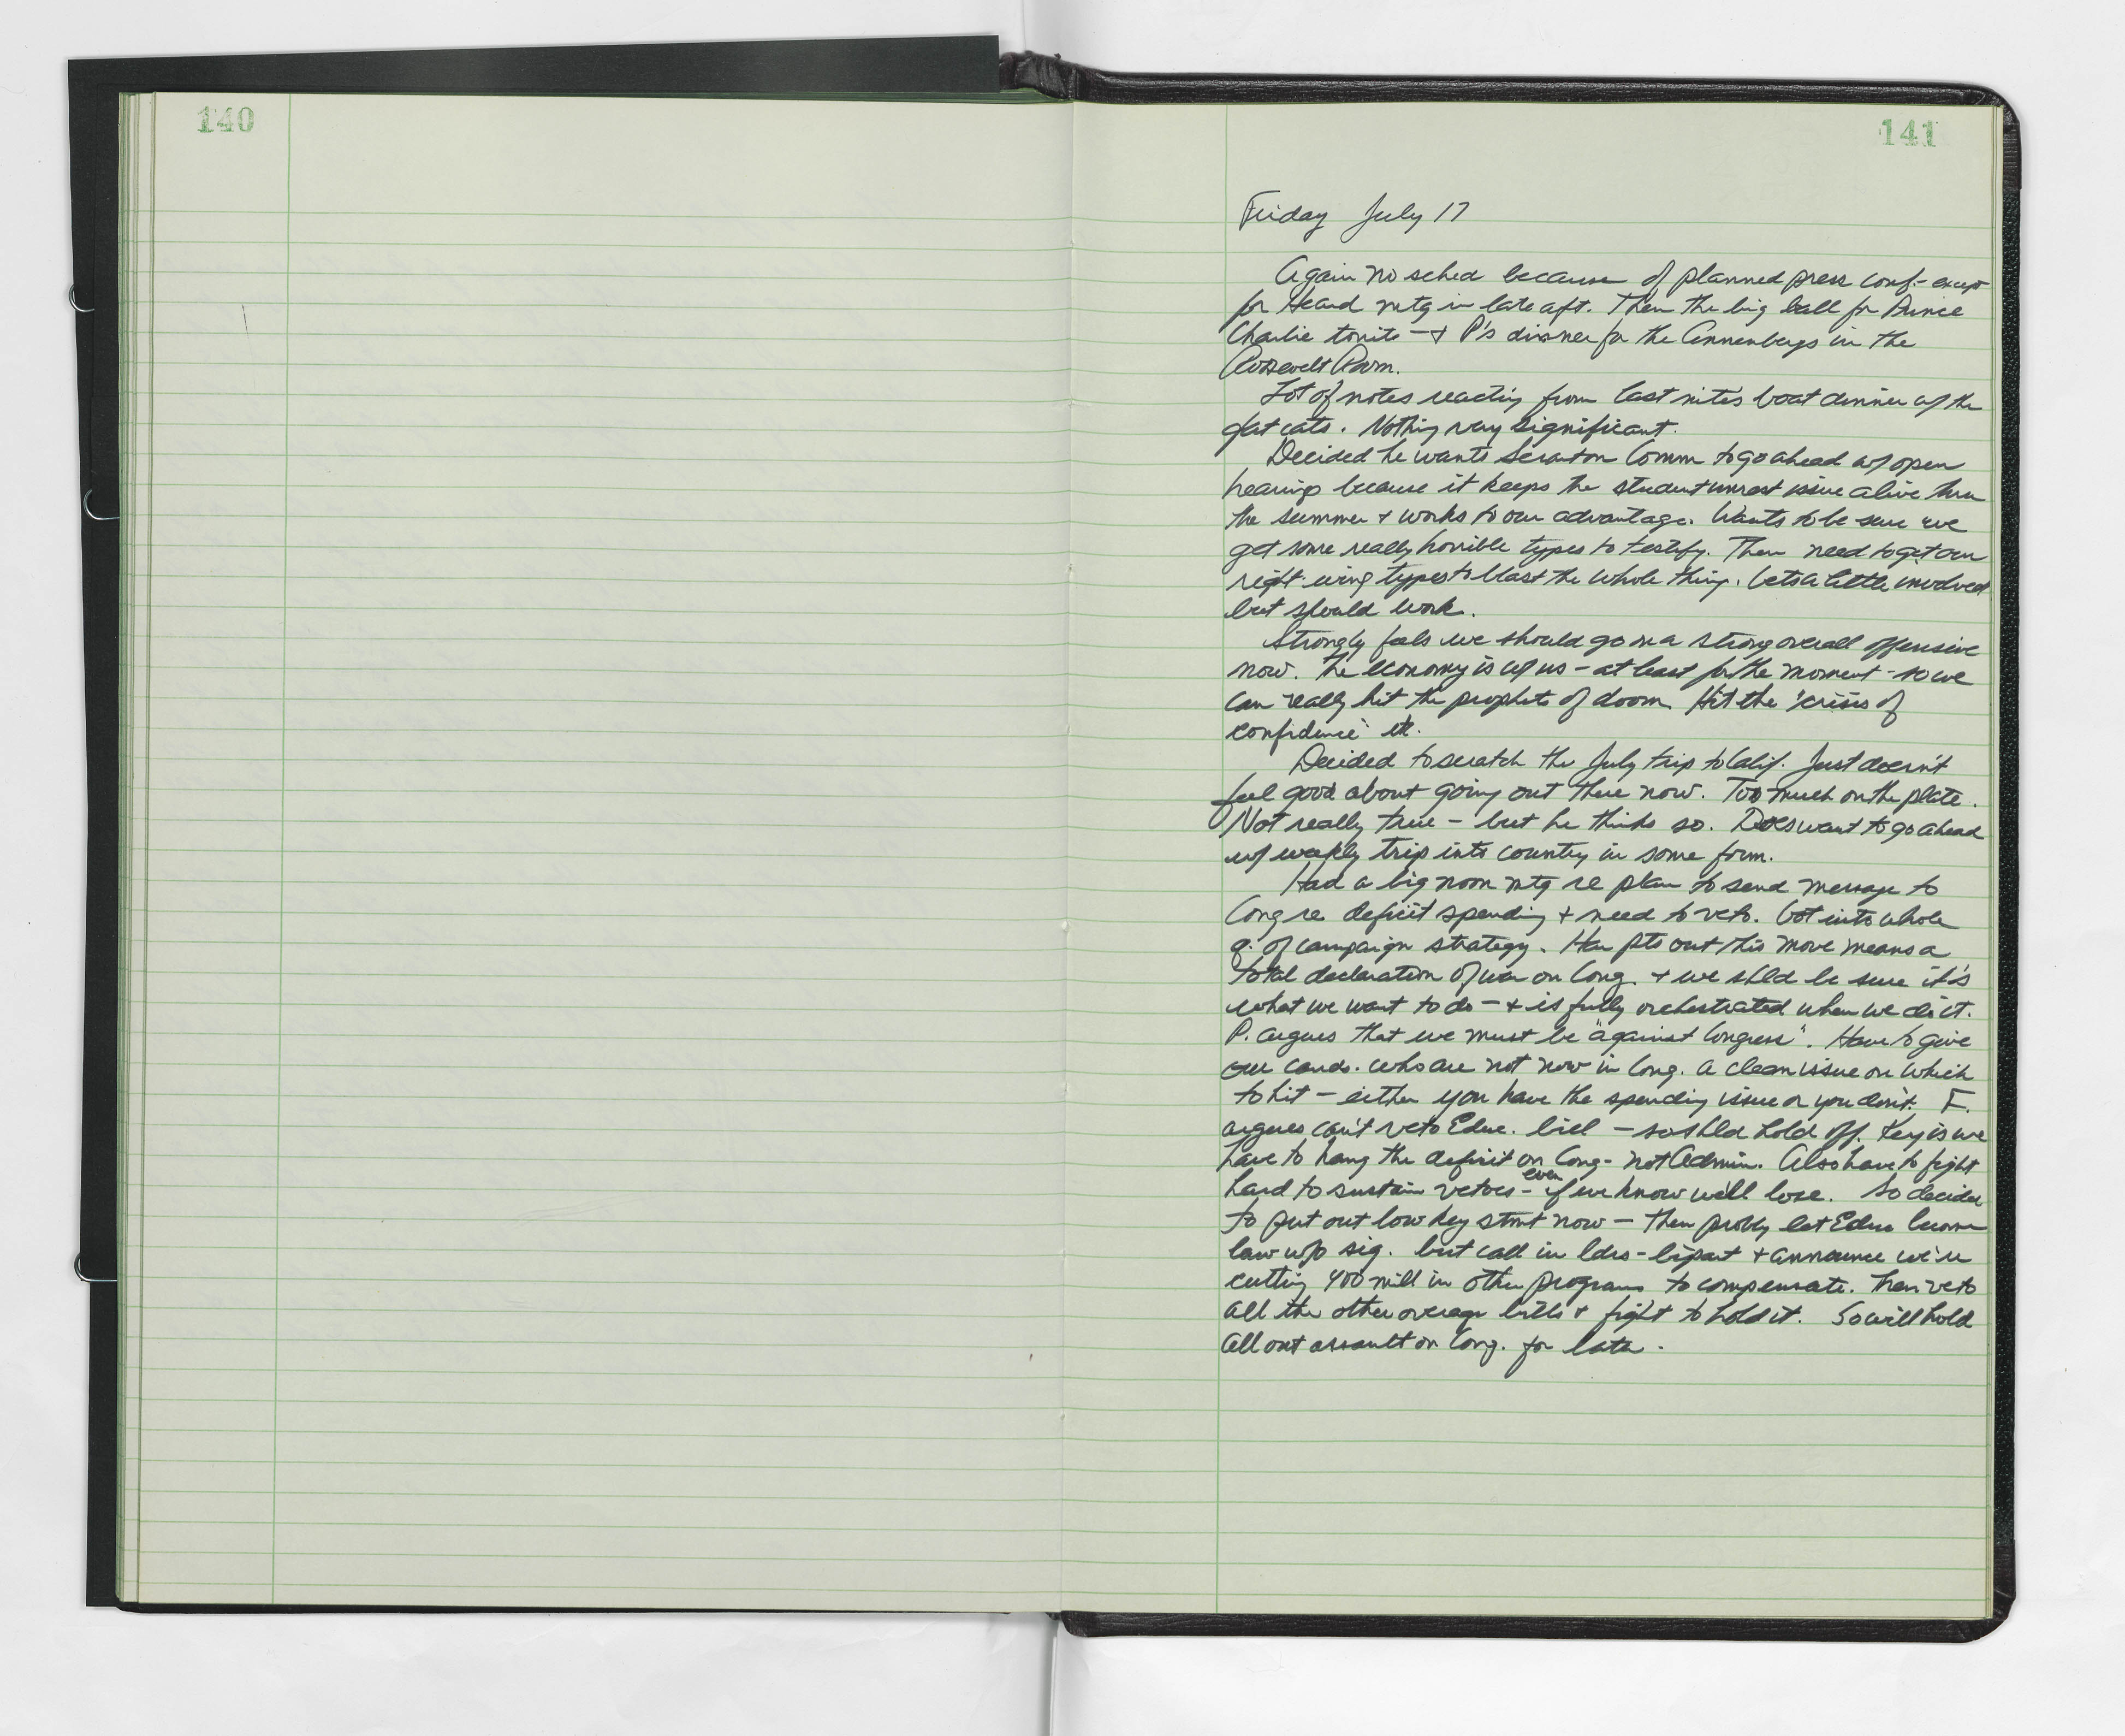 140
141
Friday July 17
Again no sched because of planned press conf. - except
for Heard mtg in late aft. Then the big ball for Prince
Charlie tonite - + P's dinner for the Annenbergs in the
Roosevelt Room.
Lot of notes reacting from last nite's boat dinner w/ the
fat cats. Nothing very significant.
Decided he wants Scranton Comm to go ahead w/ open
hearings because it keeps the student unrest issue alive thru
the summer + works to our advantage. Wants to be sure we
get some really horrible types to testify. Then need to get our
right-wing types to blast the whole thing. Gets a little involved
but should work.
Strongly feels we should go on a strong overall offensive
now. The economy is w/ us - at least for the moment - so we
can really hit the prophets of doom. Hit the "crisis of
confidence" etc.
Decided to scratch the July trip to Calif. Just doesn't
feel good about going out there now. Too much on the plate.
Not really true - but he thinks so. Does want to go ahead
w/ weekly trip into country in some form.
Had a big noon mtg re plan to send message to
Cong re deficit spending + need to veto. Got into whole
q. of campaign strategy. Har pts out this move means a
total declaration of war on Cong. + we shld be sure it's
what we want to do - + is fully orchestrated when we do it.
P. argues that we must be "against Congress". Have to give
our cands. who are not now in Cong. a clean issue on which
to hit - either you have the spending issue or you don't. E.
argues can't veto Educ. bill - so shld hold off. Key is we
have to hang the deficit on Cong - not Admin. Also have to fight
hard to sustain vetoes - even if we know we'll lose. So decided
to put out low key stmt now - then probly let Educ become
law w/o sig. but call in ldrs - bipart + announce we're
cutting 400 mill in other programs to compensate. Then veto
all the other overage bills + fight to hold it. So will hold
all out assault on Cong. for later.